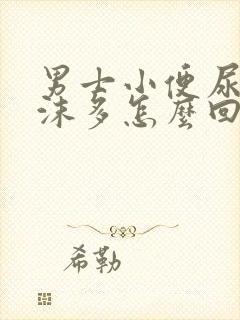 男士小便尿
沫多怎麼回
希勒